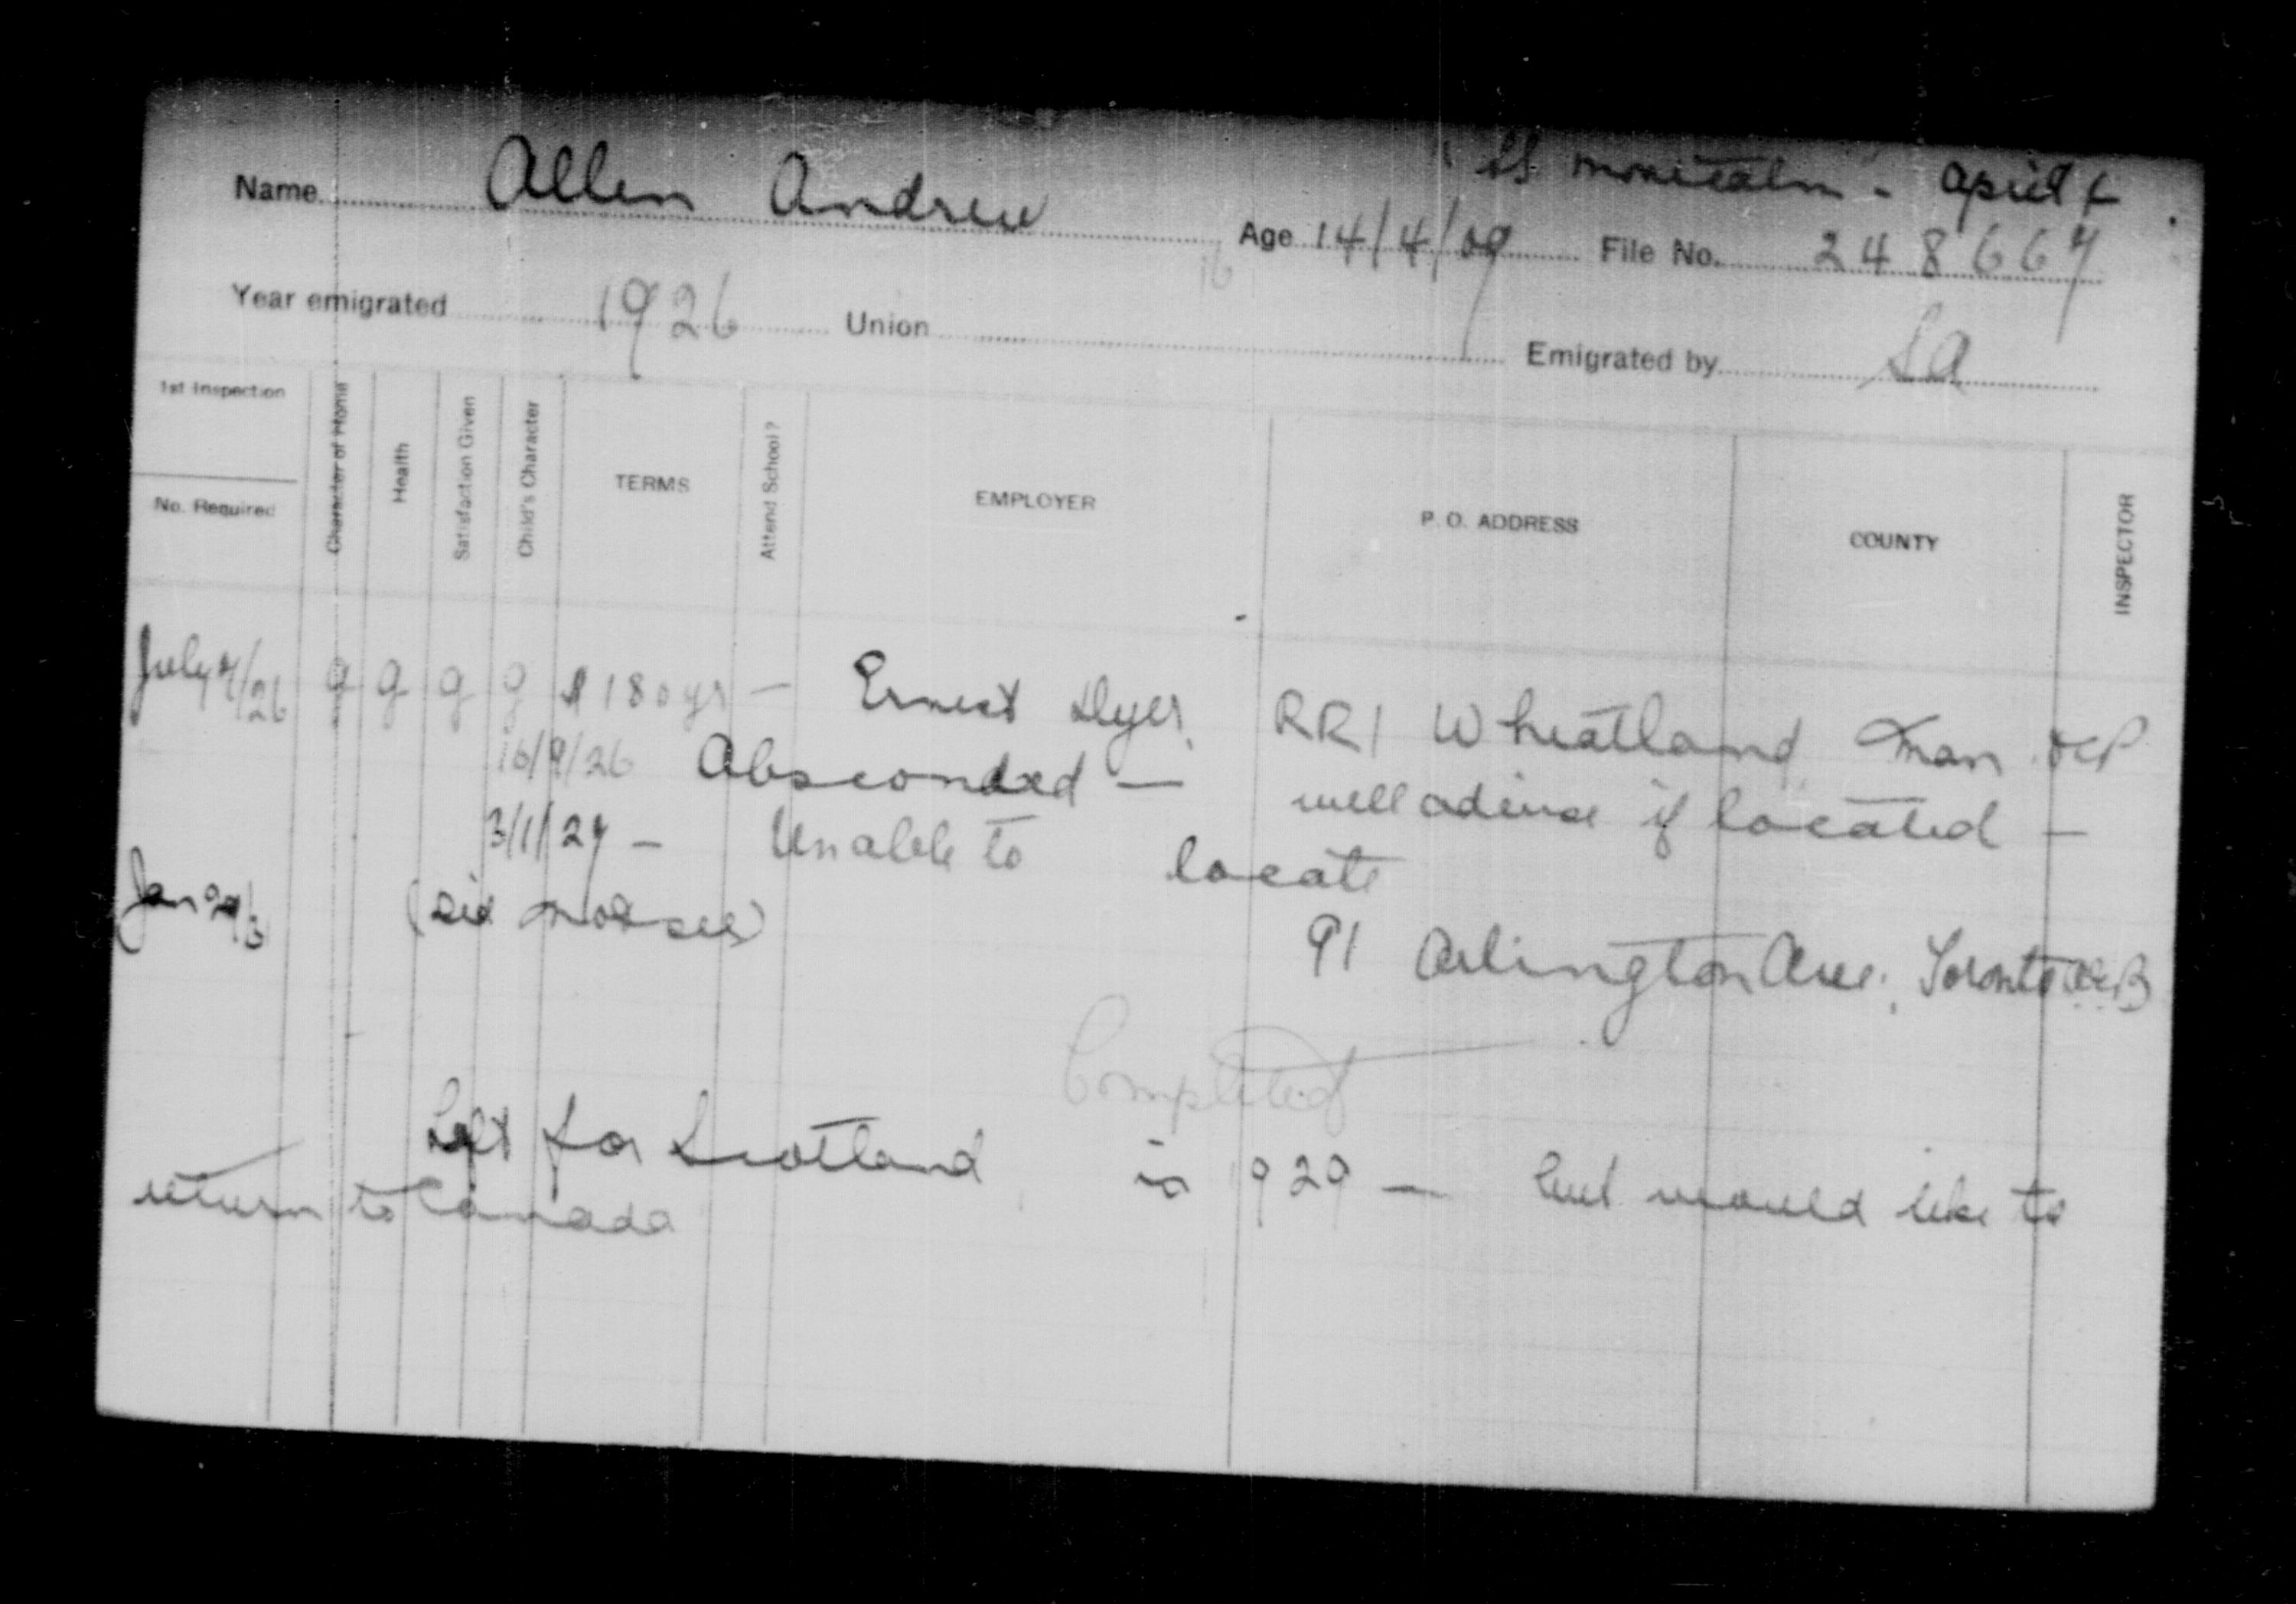 SS Montcalm - April
Name Allen Andrew Age 14/4/09 File No. 248667
16
Year emigrated 1926 Union Emigrated by SA
1st Inspection
No. Required
Character of Home
Health
Satisfaction Given
Child's Character
TERMS
Attend School?
EMPLOYER
P. O. ADDRESS
COUNTY
INSPECTOR
July /26 g g g g $180 yr — Ernest Dyer RR1 Wheatland Man
16/9/26 Absconded — will advise if located —
3/1/27 - Unable to locate
Jan 91 Arlington Ave. Toronto
Completed
Left for Scotland in 1929 — but would like to
return to Canada